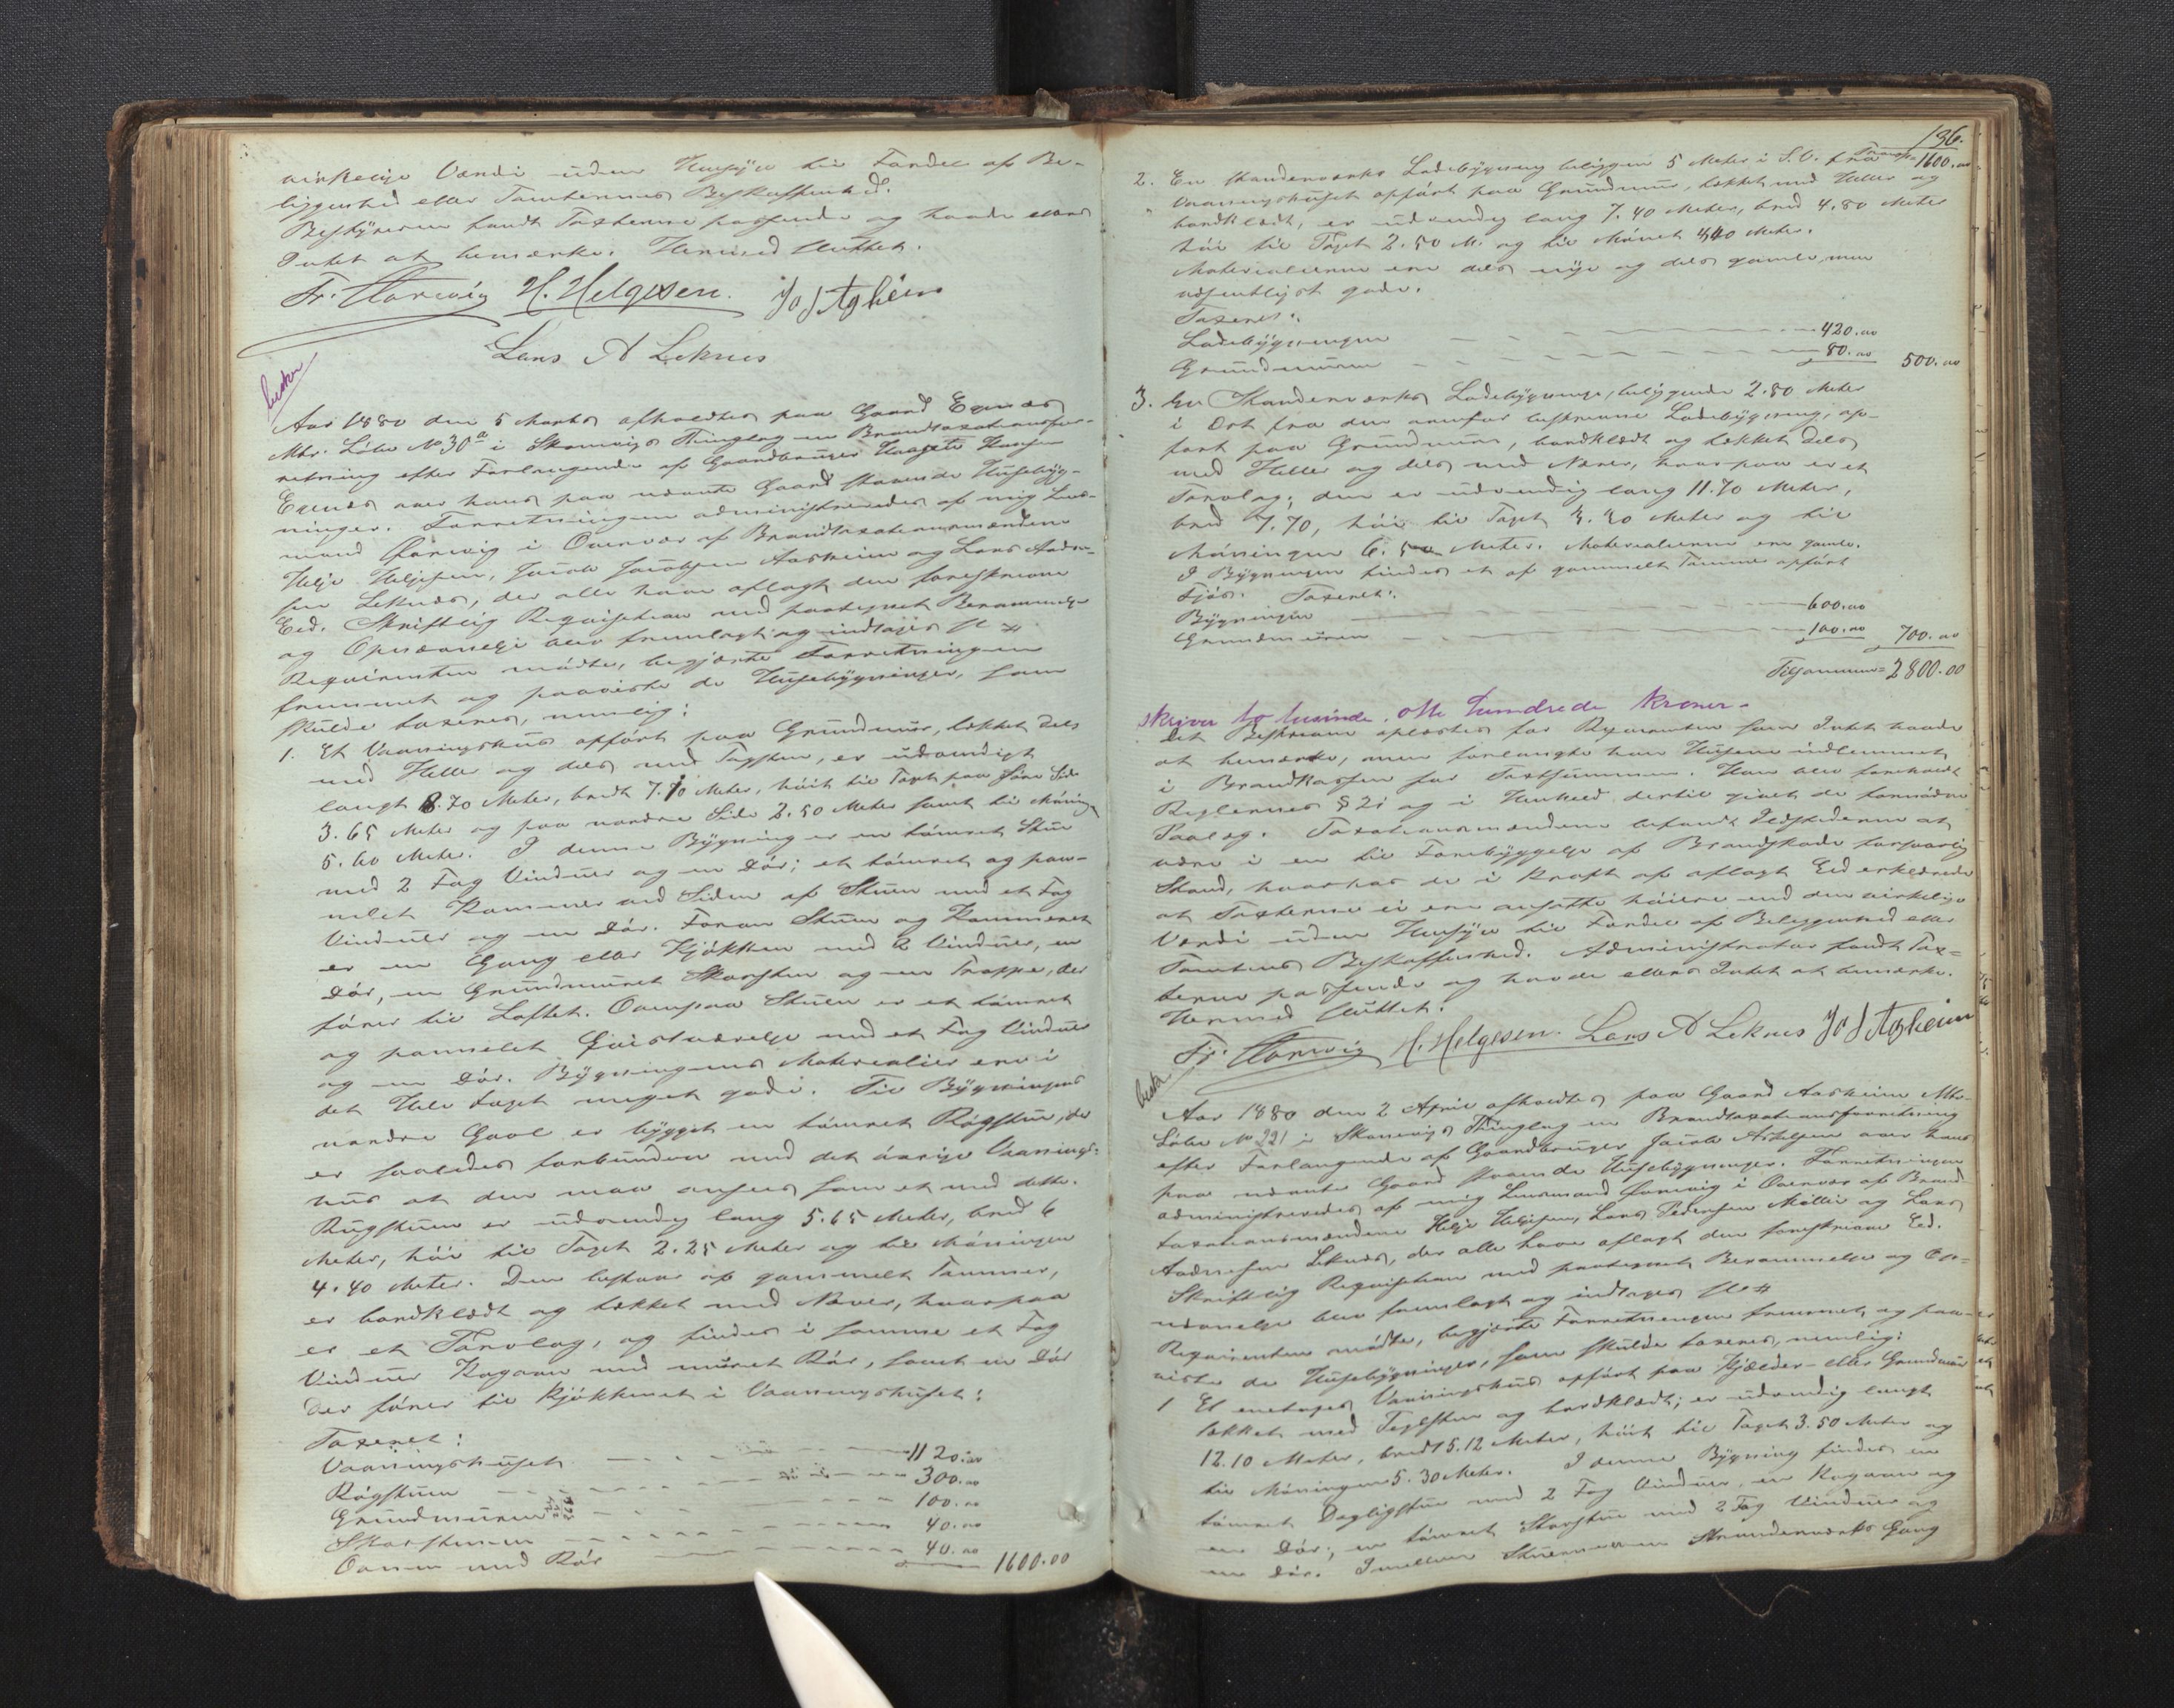 virkelige Værdi uden Hensyn til Fordel af Be-
liggenhed eller Tomternes Beskaffenhed.
Bestyreren fandt Taxterne passende og havde ellers
Intet at bemærke. Hermed sluttet.
Fr. Horwig H. Helgesen. J O J Agheim
Lars A Leknes
Aar 1880 den 5 Marts afholdtes paa Gaard Ecnæs
Mtr. Løbe No 30a i Skonevigs Thinglag en Brandtaxationsfor-
retning efter Forlangende af Gaardbruger Hansen
Ecnæs over hans paa nævnte Gaard staaende Husebyg-
ninger. Forretningen administreredes af mig Lens-
mand Horwig i Overvær af Brandtaxationsmændene
Helje Heljesen, Jacob Jacobsen Aasheim og Lars Andrea-
sen Leknæs, der alle have aflagt den foreskrevne
Eed. Skriftlig Reqvisition med paategnet Berammelse
og Opnævnelse blev fremlagt og indtages
Reqvirenten mødte, begjærte Forretningen
fremmet og paaviste de Husebygninger, som
skulde taxeres, nemlig:
1. Et Vaaningshus opført paa Grundmur, tækket dels
med Heller og dels med Tagsten, er udvendigt
langt 8.70 Meter, bredt 7.70 Meter, høit til Taget paa søre Side
3.65 Meter og paa nordre Side 2.50 Meter samt til Møning
5.60 Meter. I denne Bygning er en tømret Stue
med 2 Fag Vinduer og en Dør; et tømret og paa-
nelet Kammer ved Siden af Stuen med et Fag
Vinduer og en Dør. Foran Stuen og Kammeret
er en Gang eller Kjøkken med 2 Vinduer, en
Dør, en Grundmuret Skorsten og en Trappe, der
fører til Loftet. Ovenpaa Stuen er et tømret
og pannelet Qvistværelse med et Fag Vinduer
og en Dør. Bygningens Materialier ere i
det Hele taget meget gode. Til Bygningens
nordre Gavl er bygget en tømret Røgstue, der
er saaledes forbunden med det øvrige Vaanings-
hus at den maa ansees som et med dette.
Røgstuen er udvendig lang 5.65 Meter, bred 6
Meter, høi til Taget 2.25 Meter og til Møningen
4.40 Meter. Den bestaar af gammelt Tømmer,
er bordklædt og tækket med Næver, hvorpaa
er et Torvlag, og findes i samme et Fag
Vinduer Kogeovn med muret Rør, samt en Dør
der fører til Kjøkkenet i Vaaningshuset:
Taxeret:
Vaaningshuset 1120.00
Røgstuen 300.00
Grundmuren 100.00
Skorstenen 40.00
Ovnen med Rør 40.00 1600.00
136.
Transp. 1600.00
2. En Standerværks Ladebygning beliggen 5 Meter i S.V. fra
Vaaningshuset opført paa Grundmur, tækket med Heller og
bordklædt, er udvendig lang 7.40 Meter, bred 4.80 Meter
høi til Taget 2.50 M. og til Mønet 4.40 Meter.
Materialierne ere dels nye og dels gamle, men
væsentligst gode.
Taxeret:
Ladebygningen 420.00
Grundmuren 80.00 500.00
3. En Standerværks Ladebygning, beliggende 2.80 Meter
i Øst fra den ovenfor beskrevne Ladebygning, op-
ført paa Grundmur, bordklædt og tækket dels
med Heller og dels med Næver, hvorpaa er et
Torvlag; den er udvendig lang 11.70 Meter,
bred 7.70, høi til Taget Meter og til
Møningen 6.50 Meter. Materialierne ere gamle.
I Bygningen findes et af gammelt Tømmer opført
Fjøs. Taxeret:
Bygningen 600.00
Grundmuren 100.00 700.00
Tilsammen = 2800.00
skriver to tusinde otte hundrede kroner.
Det Beskrevne oplæstes for Reqvirenten som Intet havde
at bemærke, men forlangte han Husene indlemmet
i Brandkassen for Taxtsummen. Han blev foreholdt
Reglernes § 21 og i Henhold dertil givet de fornødne
Paalæg. Taxationsmændene befandt Ildstederne at
være i en til Forebyggelse af Brandskade forsvarlig
Stand, hvorhos de i Kraft af aflagt Eed erklærede
at Taxterne ei ere ansatte høiere end den virkelige
Værdi uden Hensyn til Fordel af Beliggenhed eller
Tomtens Beskaffenhed. Administrator fandt Tax-
terne passende og havde ellers Intet at bemærke.
Hermed sluttet.
Fr. Horwig H. Helgesen. Lars A Leknes J O J Agheim
Aar 1880 den 2 April afholdtes paa Gaard Aasheim Mtr.
Løbe No 221 i Skonevigs Thinglag en Brandtaxationsforretning
efter Forlangende af Gaardbruger Jacob over hans
paa nævnte Gaard staaende Husebygninger. Forretningen
administreredes af mig Lensmand Horwig i Overvær af Brand-
taxationsmændene Helje Heljesen, Lars Pedersen Møllir og Lars
Andreasen Leknæs, der alle have aflagt den foreskrevne Eed.
Skriftlig Reqvisition med paategnet Berammelse og Op-
nævnelse blev fremlagt og indtages
Reqvirenten mødte, begjærte Forretningen fremmet, og paa-
viste de Husebygninger, som skulde taxeres, nemlig:
1 Et enetages Vaaningshus opført paa Kjælder- eller Grundmur
tækket med Teglsten og bordklædt; er udvendig langt
12.10 Meter, bredt 5.12 Meter, høit til Taget 3.50 Meter og
til Møningen 5.30 Meter. I denne Bygning findes en
tømret Dagligstue med 2 Fag Vinduer, en Kogeovn og
en Dør; en tømret Storstue med 2 Fag Vinduer og
en Dør. Imellem Stuerne en Standerværks Gang